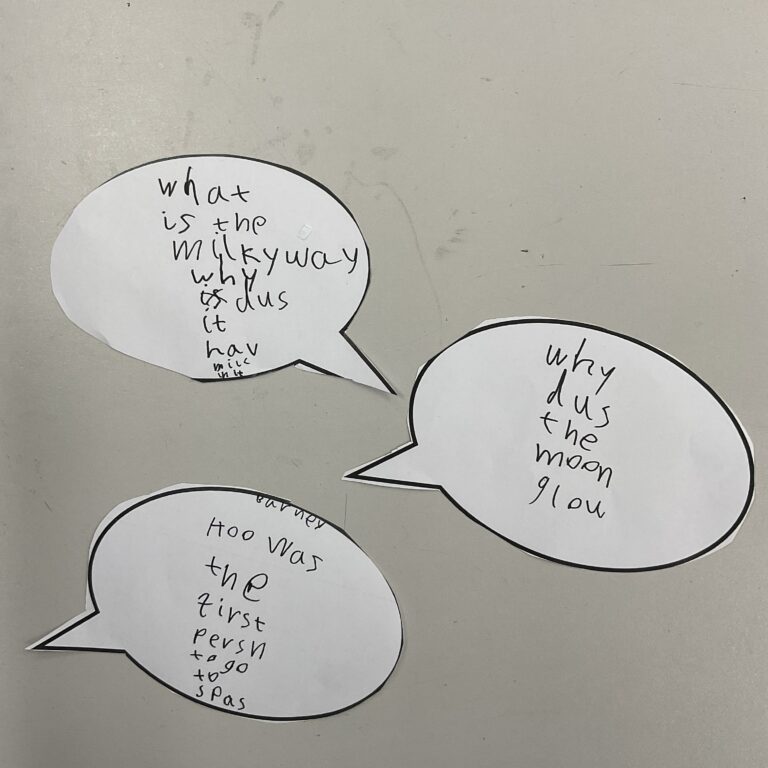 what
is the
milkyway
why
is dus
it
hav
milc
why
dus
the
moon
glow
Barney
Hoo was
the
first
persn
to go
to
spas